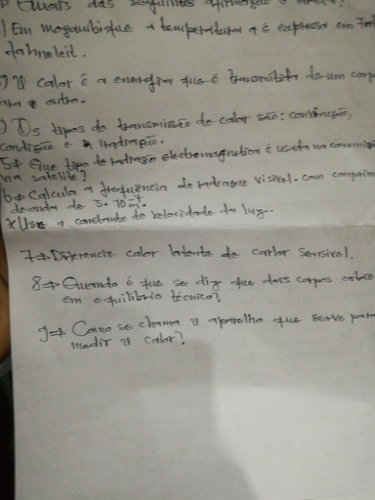 Quais das seguintes
) Em mozambique a temperatura é expressa em
fahneleit.
) O calor é a energia que é transmitida de um corpo
para outro.
) Os tipos de transmissão de calor são: convecção,
condição e irradiação.
5⇒ Que tipo de radiação electromagnética é usada na
via satélite?
6⇒ Calcula a frequência de radiação visível. com comprim
de onda de 5.10⁻⁷m.
* Use a constante de velocidade da luz.
7⇒ Diferencie calor latente de carlor sensivel.
8⇒ Quando é que se diz que dois corpos
em equilibrio técnico?
9⇒ Como se chama o aparelho que serve para
medir o calor?